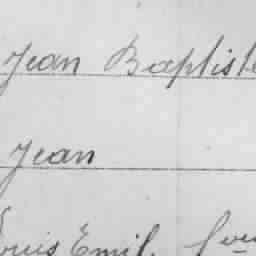 Jean Baptiste
Jean
Louis Emil.